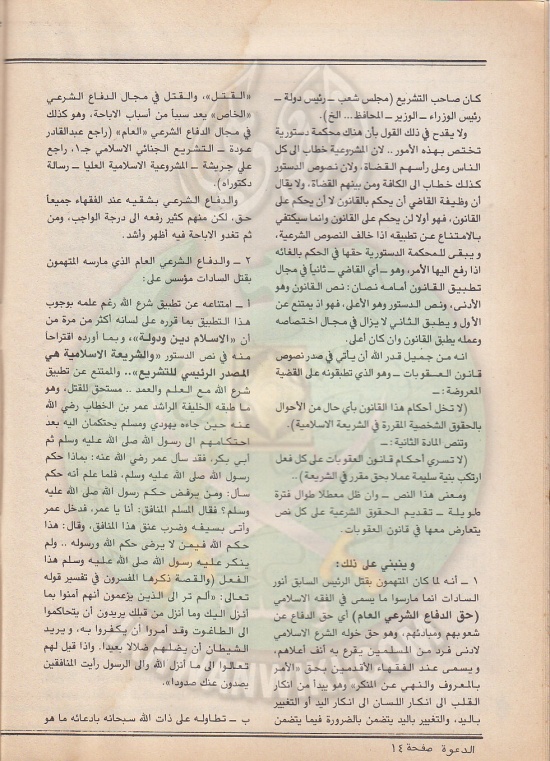 كان صاحب التشريع (مجلس شعب ــ رئيس دولة ــ
رئيس الوزراء ــ الوزير ــ المحافظ... الخ).
ولا يقدح في ذلك القول بأن هناك محكمة دستورية
تختص بهذه الأمور .. لان المشروعية خطاب الى كل
الناس وعلى رأسهم القضاة، ولان نصوص الدستور
كذلك خطاب الى الكافة ومن بينهم القضاة. ولا يقال
أن وظيفة القاضي أن يحكم بالقانون لا أن يحكم على
القانون، فهو أولا لن يحكم على القانون وانما سيكتفي
بالامتناع عن تطبيقه اذا خالف النصوص الشرعية،
ويبقى للمحكمة الدستورية حقها في الحكم بالغائه
اذا رفع اليها الأمر، وهو ــ أي القاضي ــ ثانياً في مجال
تطبيق القانون أمامه نصان: نص القانون وهو
الأدنى، ونص الدستور وهو الأعلى، فهو اذ يمتنع عن
الأول ويطبق الثاني لا يزال في مجال اختصاصه
وعمله يطبق القانون وان كان أعلى.
انه من جميل قدر الله أن يأتي في صدر نصوص
قانون العقوبات ــ وهو الذي تطبقونه على القضية
المعروضة: ــ
(لا تخل أحكام هذا القانون بأي حال من الأحوال
بالحقوق الشخصية المقررة في الشريعة الاسلامية).
وتنص المادة الثانية: ــ
(لا تسري أحكام قانون العقوبات ــ على كل فعل
ارتكب بنية سليمة عملا بحق مقرر في الشريعة)..
ومعنى هذا النص ــ وان ظل معطلا طوال فترة
طويلة ــ تقديم الحقوق الشرعية على كل نص
يتعارض معها في قانون العقوبات.
وينبني على ذلك:
١ ــ أنه لما كان المتهمون بقتل الرئيس السابق أنور
السادات انما مارسوا ما يسمى في الفقه الاسلامي
(حق الدفاع الشرعي العام) أي حق الدفاع عن
شعوبهم ومبادئهم، وهو حق خوله الشرع الاسلامي
لادنى فرد من المسلمين يقرع به أنف أعلاهم،
ويسمى عند الفقهاء الأقدمين بحق «الأمر
بالمعروف والنهي عن المنكر» وهو يبدأ من انكار
القلب الى انكار اللسان الى انكار اليد أو التغيير
باليد، والتغيير باليد يتضمن بالضرورة فيما يتضمن
«القتل»، والقتل في مجال الدفاع الشرعي
«الخاص» يعد سبباً من أسباب الاباحة، وهو كذلك
في مجال الدفاع الشرعي «العام» (راجع عبدالقادر
عودة ــ التشريع الجنائي الاسلامي جـ١، راجع
علي جريشة ــ المشروعية الاسلامية العليا ــ رسالة
دكتوراه).
والدفاع الشرعي بشقيه عند الفقهاء جميعاً
حق، لكن منهم كثير رفعه الى درجة الواجب، ومن
ثم تغدو الاباحة فيه أظهر وأشد.
٢ ــ والدفاع الشرعي العام الذي مارسه المتهمون
بقتل السادات مؤسس على:
أ ــ امتناعه عن تطبيق شرع الله رغم علمه بوجوب
هذا التطبيق بما قرره على لسانه أكثر من مرة من
أن «الاسلام دين ودولة»، وبما أورده اقتراحاً
منه في نص الدستور «والشريعة الاسلامية هي
المصدر الرئيسي للتشريع».. والممتنع عن تطبيق
شرع الله مع العلم والعمد .. مستحق للقتل، وهو
ما طبقه الخليفة الراشد عمر بن الخطاب رضي الله
عنه حين جاءه يهودي ومسلم يحتكمان اليه بعد
احتكامهم الى رسول الله صلى الله عليه وسلم ثم
أبي بكر، فقد سأل عمر رضي الله عنه: بماذا حكم
رسول الله صلى الله عليه وسلم، فلما علم أنه حكم
سأل: ومن يرفض حكم رسول الله صلى الله عليه
وسلم؟ فقال المسلم المنافق: أنا يا عمر، فدخل عمر
وأتى بسيفه وضرب عنق هذا المنافق، وقال: هذا
حكم الله فيمن لا يرضى حكم الله ورسوله .. ولم
ينكر عليه رسول الله صلى الله عليه وسلم هذا
الفعل (والقصة ذكرها المفسرون في تفسير قوله
تعالى: «ألم تر الى الذين يزعمون أنهم آمنوا بما
أنزل اليك وما أنزل من قبلك يريدون أن يتحاكموا
الى الطاغوت وقد أمروا أن يكفروا به، ويريد
الشيطان أن يضلهم ضلالا بعيدا. واذا قيل لهم
تعالوا الى ما أنزل الله والى الرسول رأيت المنافقين
يصدون عنك صدودا».
ب ــ تطاوله على ذات الله سبحانه بادعائه ما هو
الدعوة صفحة ١٤